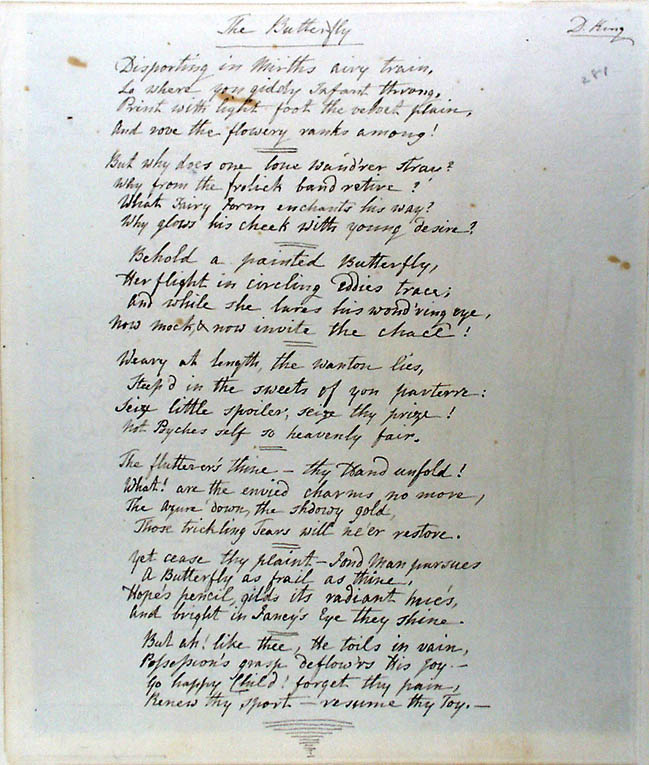 The Butterfly
D. King
281
Disporting in Mirths airy train,
Lo where yon giddy Infant throng,
Print with light foot the velvet plain,
And rove the flowery ranks among!
But why does one lone Wand'rer stray?
Why from the frolick band retire?
What Fairy Form enchants his way?
Why glows his cheek with young desire?
Behold a painted Butterfly,
Her flight in circling Eddies trace;
And while she lures his wond'ring eye,
Now mock, & now invite the chace!
Weary at length, the wanton lies,
Steep'd in the sweets of yon parterre:
Seize little spoiler, seize thy prize!
Not Pyches self so heavenly fair.
The flutterer's thine - thy Hand unfold!
What! are the envied charms no more,
The azure down, the shdowy gold,
Those trickling Tears will ne'er restore.
Yet cease thy plaint - Fond Man pursues
A Butterfly as frail as thine,
Hope's pencil gilds its radiant hue's,
And bright in Fancy's Eye they shine.
But ah! like thee, He toils in vain,
Possession's grasp deflow'rs His joy. -
Go happy Child! forget thy pain,
Renew thy sport - resume thy Toy. -